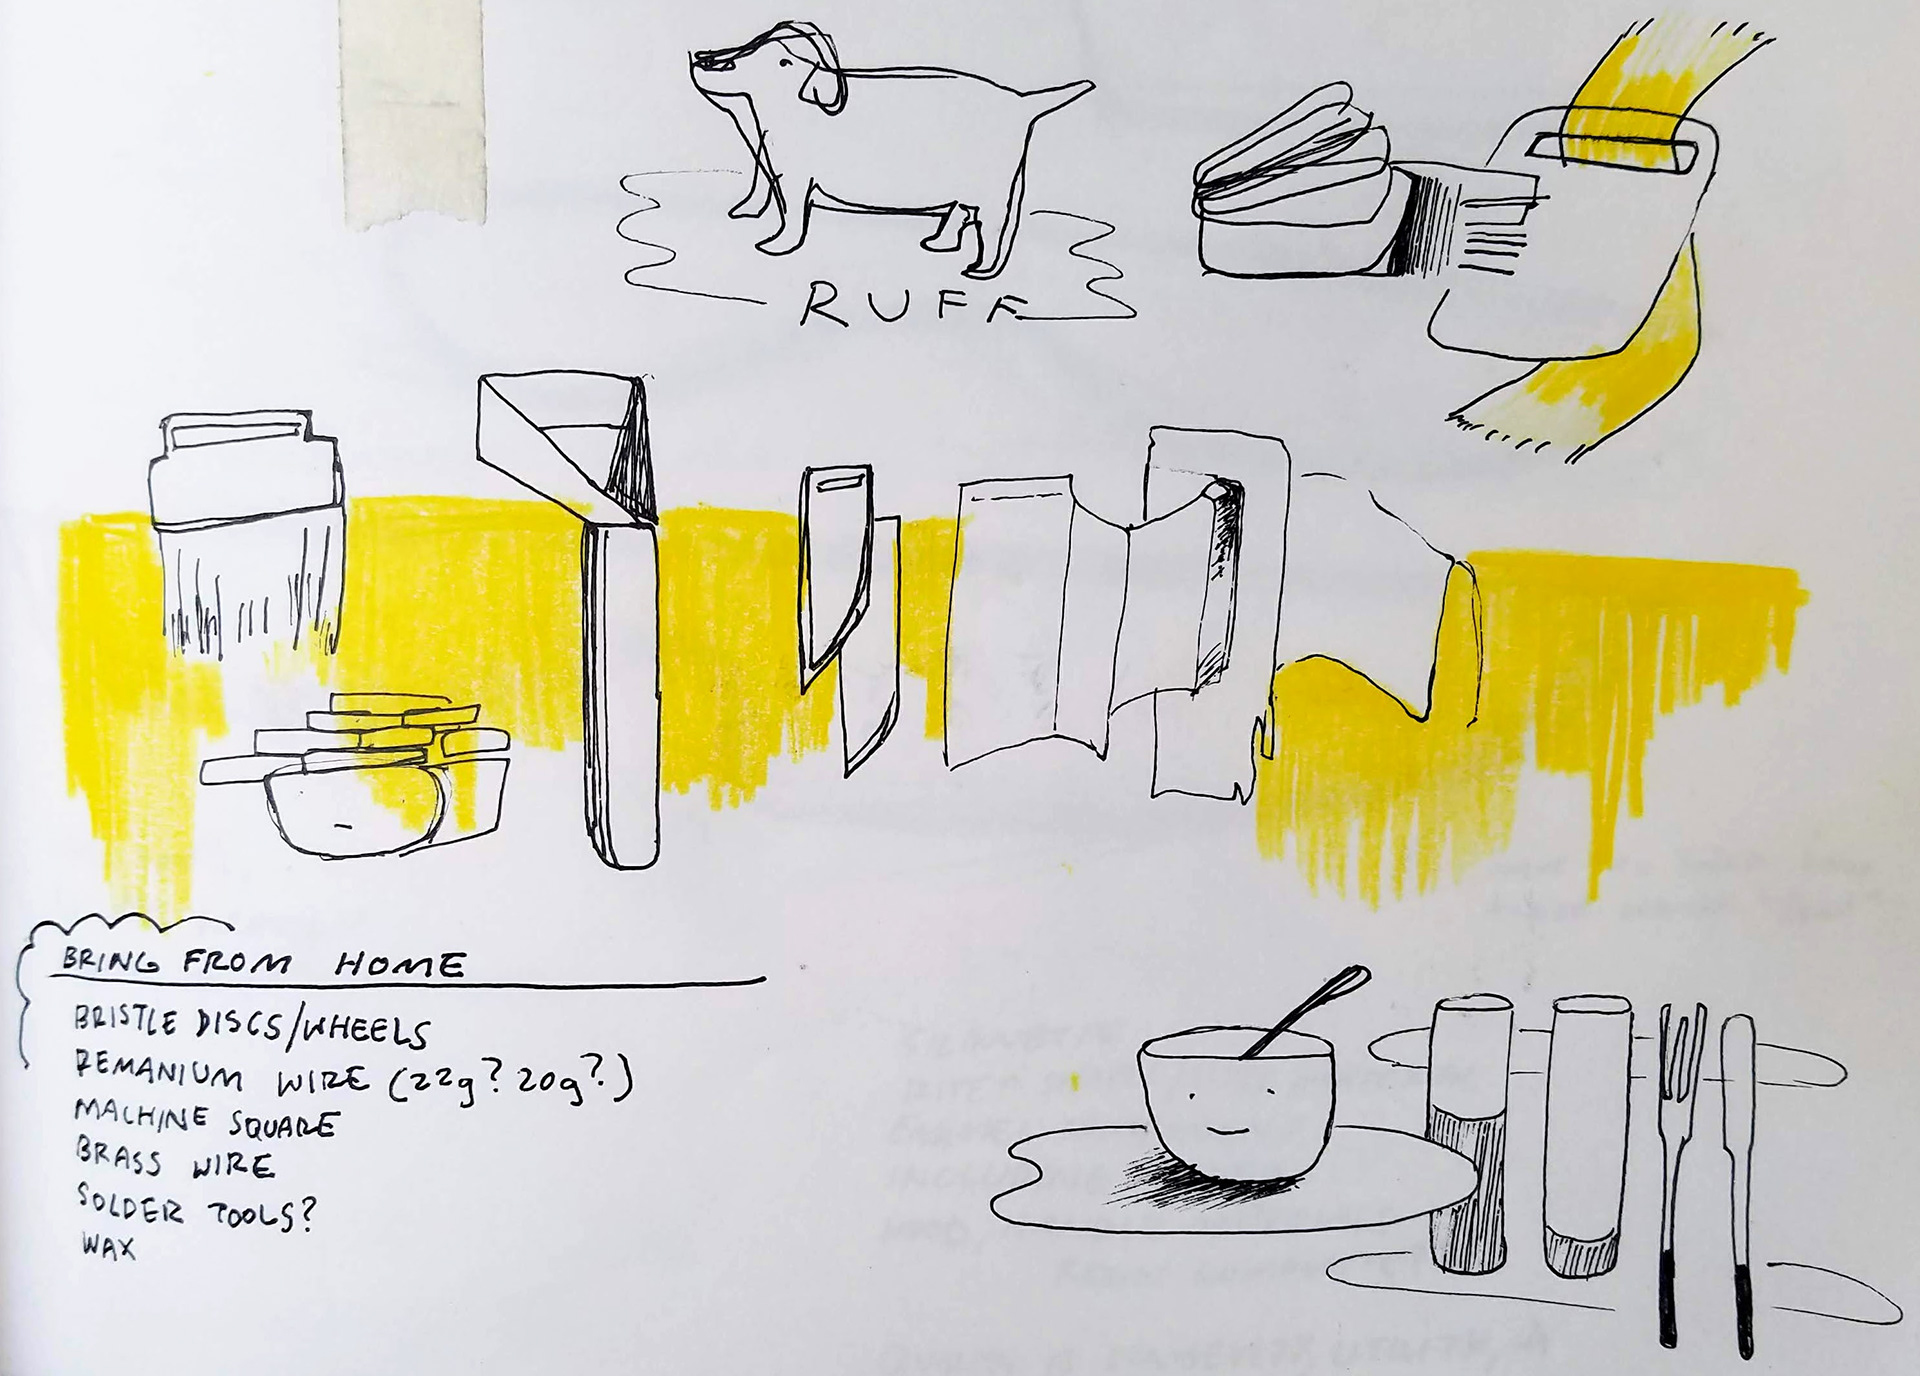 RUFF
BRING FROM HOME
BRISTLE DISCS/WHEELS
REMANIUM WIRE (22g? 20g?)
MACHINE SQUARE
BRASS WIRE
SOLDER TOOLS?
WAX